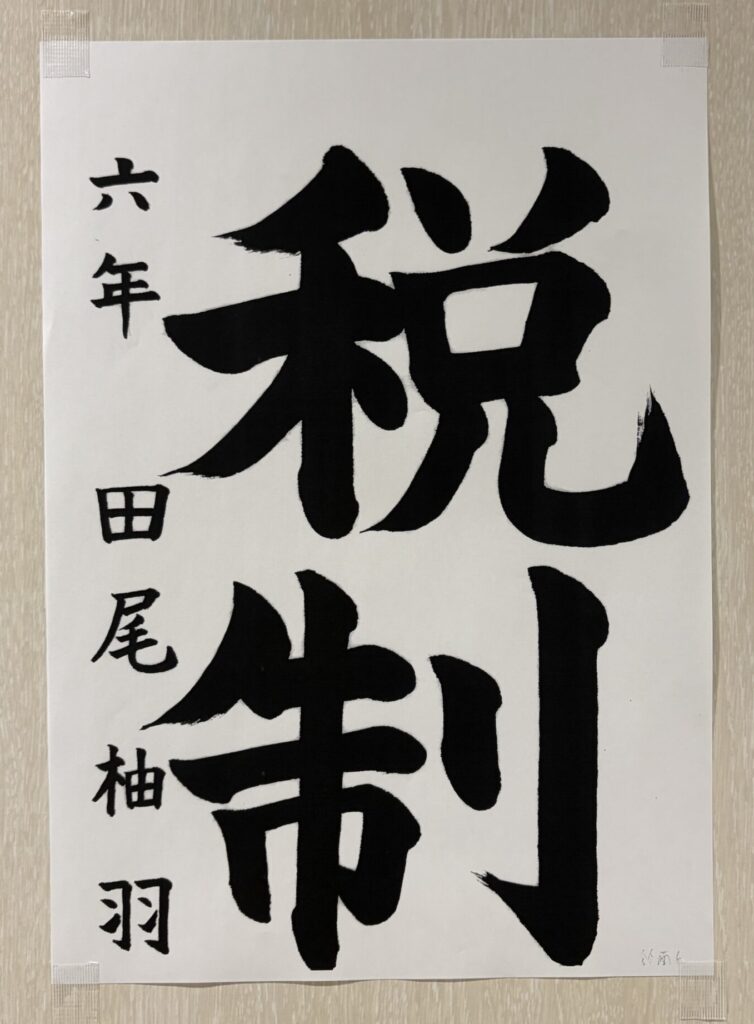 税制
六年 田尾柚羽